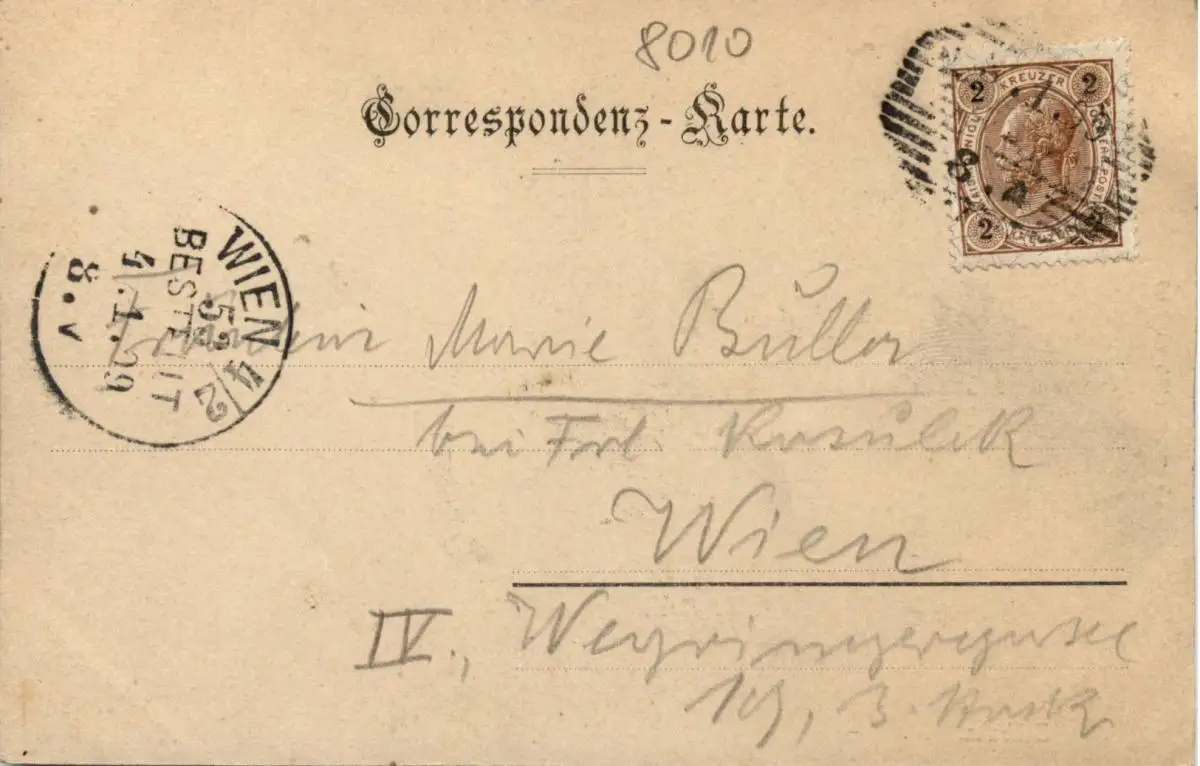 8010
Correspondenz-Karte.
2 KREUZER 2
2
WIEN 4/2
52
BESTELLT
4.1.99
8.V
Fräulein Marie Buller
bei Frl Kosulek
Wien
IV., Weyringergasse
19, 3. Stock